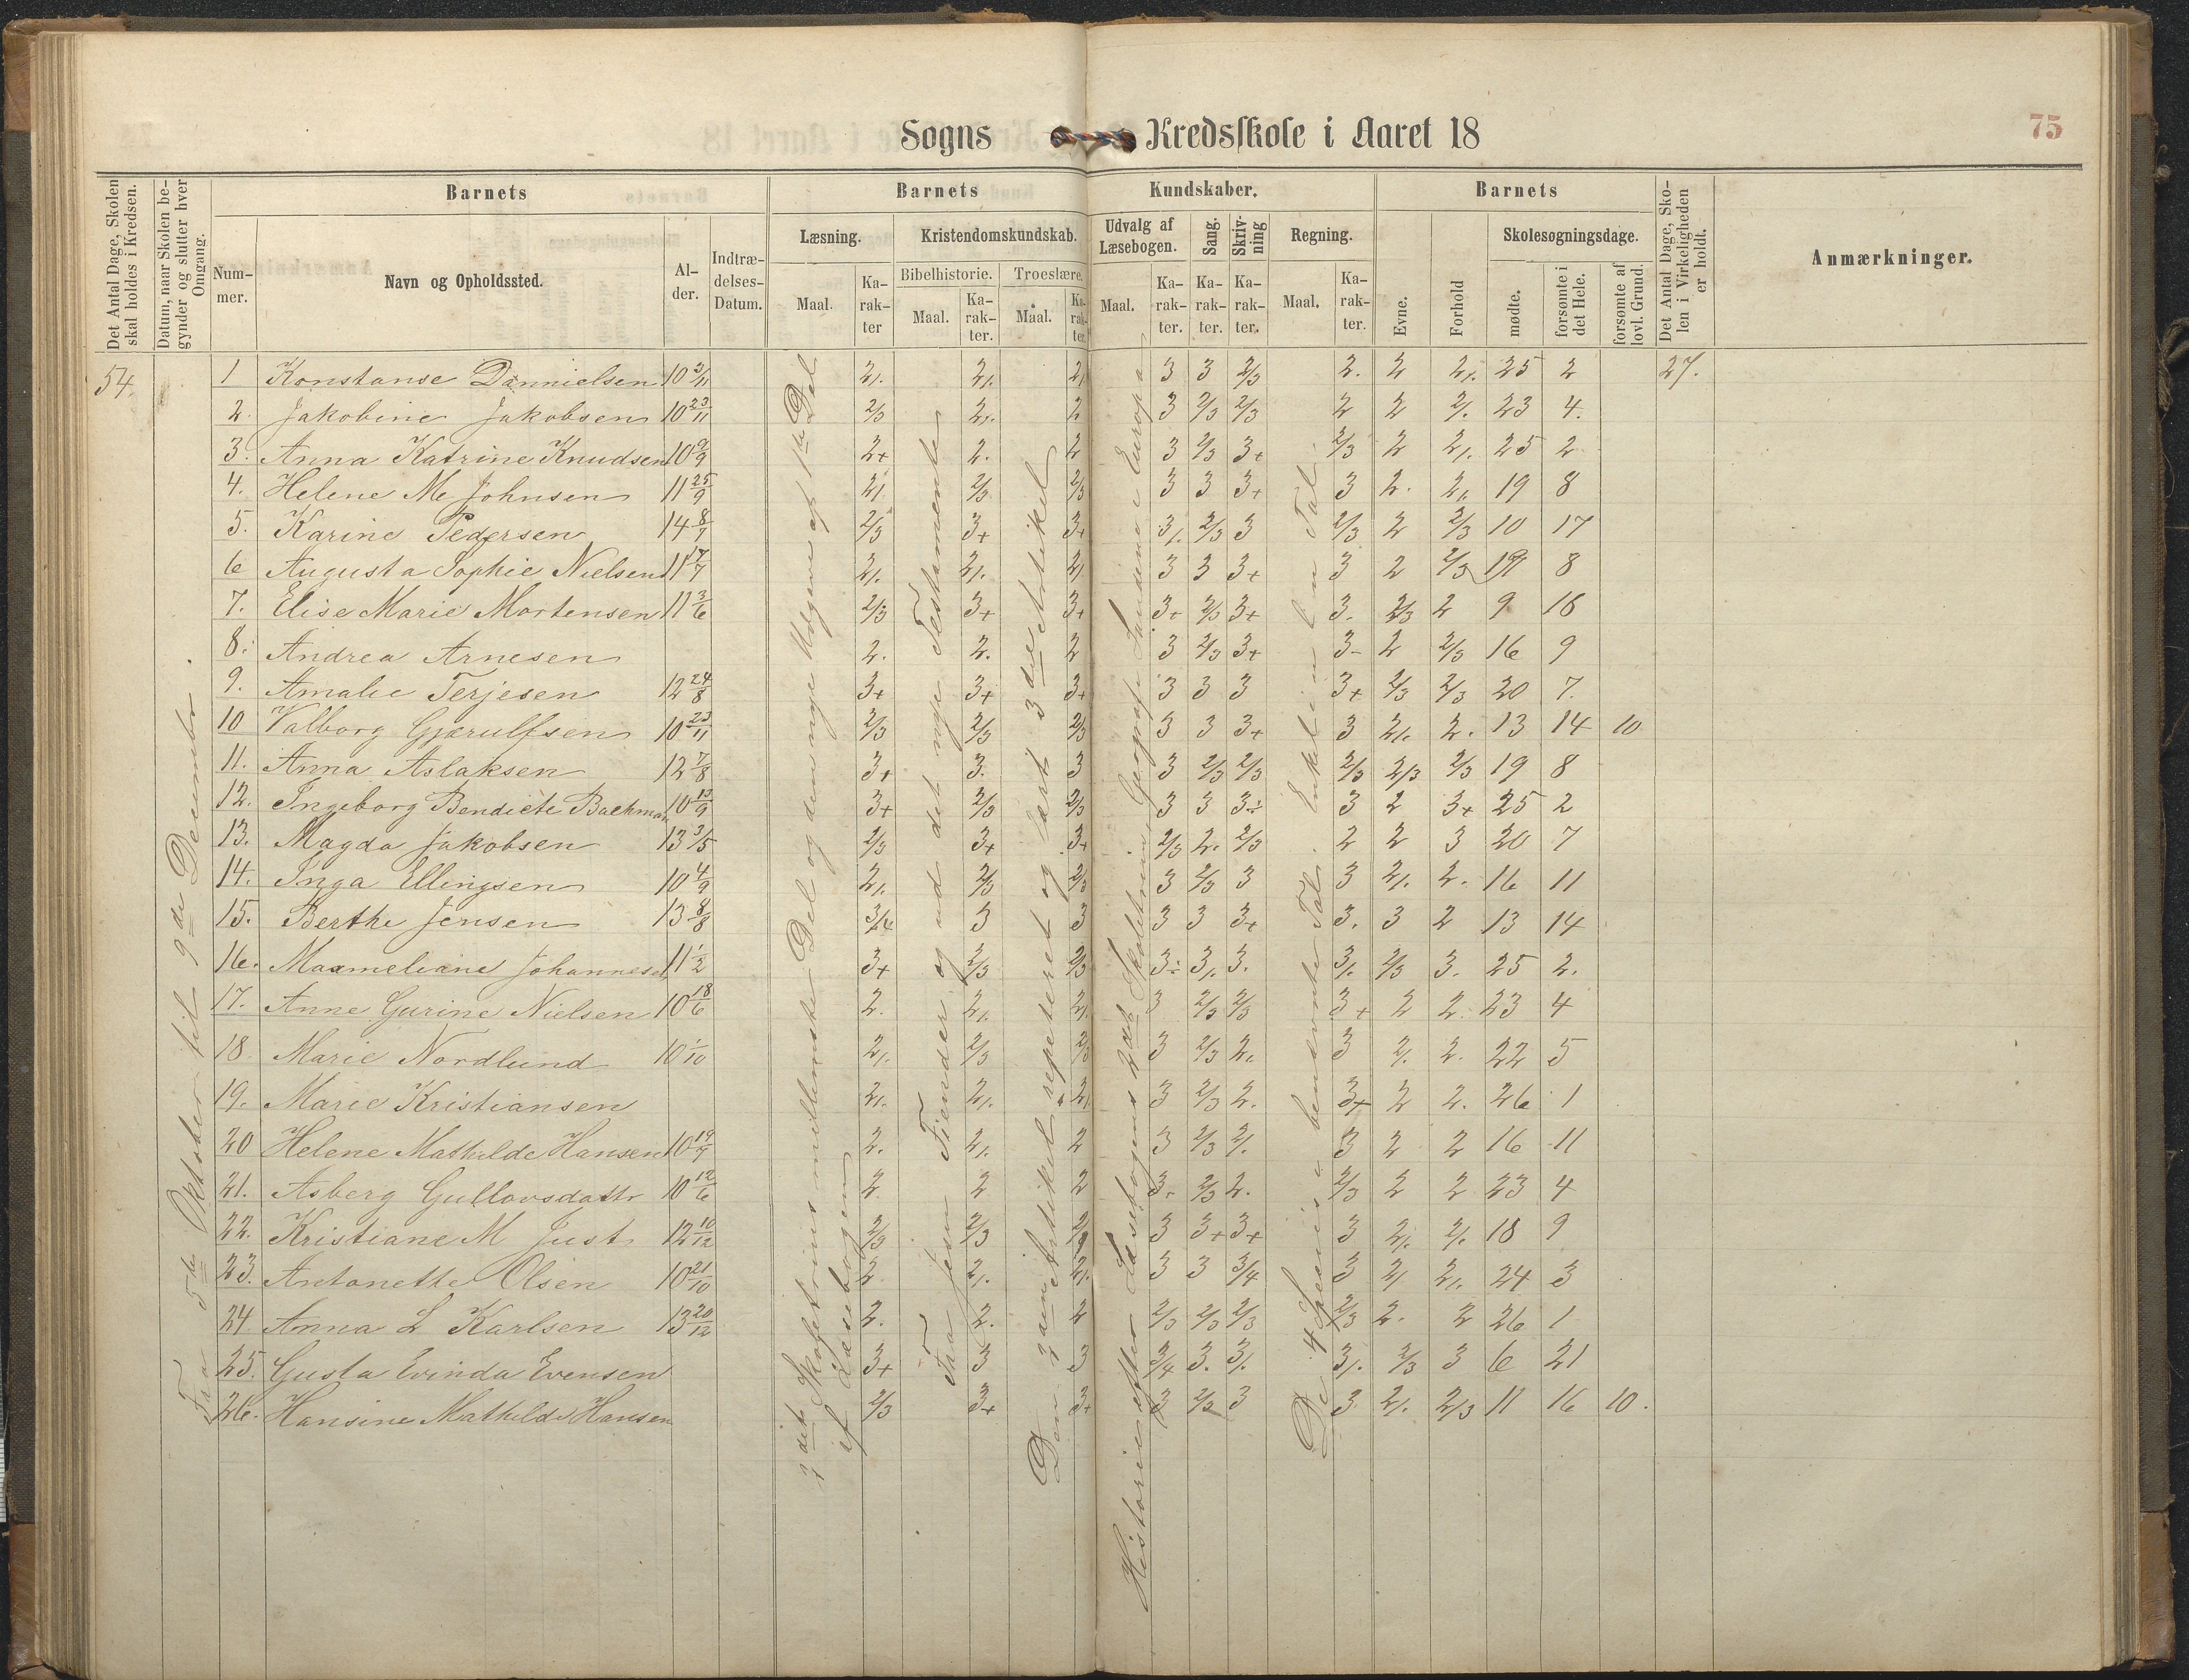 Sogns Kredsskole i Aaret 18
75
Det Antal Dage, Skolen skal holdes i Kredsen.
Datum, naar Skolen begynder og slutter hver Omgang.
Barnets
Nummer.
Navn og Opholdssted.
Alder.
Indtrædelses-Datum.
Barnets Kundskaber.
Læsning.
Maal.
Karakter
Kristendomskundskab.
Bibelhistorie.
Maal.
Karakter.
Troeslære.
Maal.
Karakter.
Udvalg af Læsebogen.
Maal.
Karakter.
Sang.
Karakter.
Skrivning
Karakter.
Regning.
Maal.
Karakter.
Barnets
Evne.
Forhold
Skolesøgningsdage.
mødte.
forsømte i det Hele.
forsømte af lovl. Grund.
Det Antal Dage, Skolen i Virkeligheden er holdt.
Anmærkninger.
54.
Fra 5te Oktober til 9de December.
3die Skoletrins mellemste Del og den nye Udgave af 1ste Del af Læsebogen
Fra Jesu Fiender og ud det nye Testamente
Den 2den Artikel repeteret og lært 3die Artikel
Historie efter Læsebogens 2det Skoletrin. Geografi Landene i Europa
De 4 Species i benævnte Tal. Enkel
1 Konstanse Dannielsen 10 3/11 21. 21. 21 3 3 2/3 2. 2 21. 25 2 27.
2. Jakobine Jakobsen 10 23/11 2/3 21. 2 3 2/3 2/3 2 2 2/. 23 4.
3. Anna Katrine Knudsen 10 9/9 2+ 2. 2 3 2/3 3+ 2/3 2 21. 25 2
4. Helene M. Johnsen 11 25/9 21 2/3 2/3 3 3 3+ 3 2. 21. 19 8
5. Karine Pedersen 14 8/7 2/3 3+ 3+ 3/. 2/3 3 2/3 2 2/3 10 17
6 Augusta Sophie Nielsen 11 17/7 21. 21. 21 3 3 3+ 3 2 2/3 19 8
7. Elise Marie Mortensen 11 3/6 2/3 3+ 3+ 3+ 2/3 3+ 3. 2/3 2 9 18
8. Andrea Arnesen 2. 2. 2 3 2/3 3+ 3- 2 2/3 16 9
9. Amalie Terjesen 12 24/8 3+ 3+ 3+ 3 3 3 3+ 2/3 2/3 20 7.
10 Valborg Gjærulfsen 10 23/11 2/3 2/3 2/3 3 3 3+ 3 21. 2. 13 14 10
11. Anna Aslaksen 12 7/8 3+ 3. 3 3 2/3 2/3 2/3 2/3 2/3 19 8
12. Ingeborg Bendicte Backman 10 13/9 3+ 2/3 2/3 3 3 3÷ 3 2 3+ 25 2
13. Magda Jakobsen 13 3/5 2/3 3+ 3+ 2/3 2. 2/3 2 2 3 20 7
14. Inga Ellingsen 10 4/9 21. 2/3 2/3 3 2/3 3 3 2/. 2. 16 11
15. Berthe Jensen 13 8/8 3/4 3 3 3 3 3+ 3. 3 2 13 14
16. Maxmeliane Johannesen 11 1/2 3+ 2/3 2/3 3÷ 3/. 3. 3/. 2/3 3. 25 2.
17. Anne Gurine Nielsen 10 18/6 2. 21. 21. 3 2/3 2/3 3+ 2 2. 23 4
18. Marie Nordlund 10 1/10 21. 2/3 2/3 3 2/3 2. 3 2/. 2. 22 5
19. Marie Kristiansen 21. 21. 21 3 2/3 2. 3+ 2 2. 26 1
20 Helene Mathilde Hansen 10 19/7 2. 21. 2 3 2/3 2/. 3 2 2 16 11
21. Asberg Gullovsdattr 10 12/6 2. 2 2 3. 2/3 2. 2/3 2 2 23 4
22. Kristiane M Just 12 10/12 2/3 2/3 2/3 3 3+ 3+ 3 21. 2/. 18 9
23. Antonette Olsen 10 21/10 2. 21. 21. 3 3 3/4 3 2/ 21. 24 3
24 Anna L Karlsen 13 20/12 2. 2. 2 2/3 2/3 2/3 2/3 2. 2 26 1
25. Gusta Evinda Evensen 3+ 3 3 3/4 3. 3/. 3/. 2/3 3 6 21
26. Hansine Mathilde Hansen 2/3 3+ 3+ 3 2/3 3 3 2/. 2/3 11 16 10.